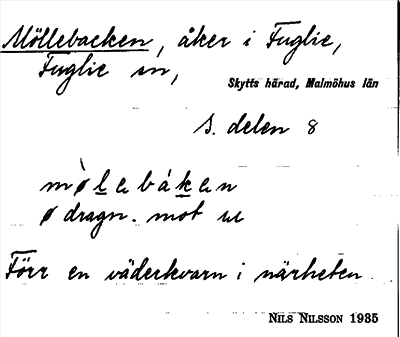 Möllebacken, åker i Fuglie,
Fuglie sn,
Skytts härad, Malmöhus län
S. delen 8
mø̀lebáken
ø dragn. mot œ
Förr en väderkvarn i närheten.
NILS NILSSON 1935